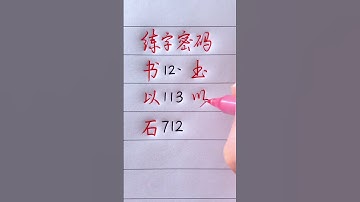 练字密码
书12· 书
以113 以
石712